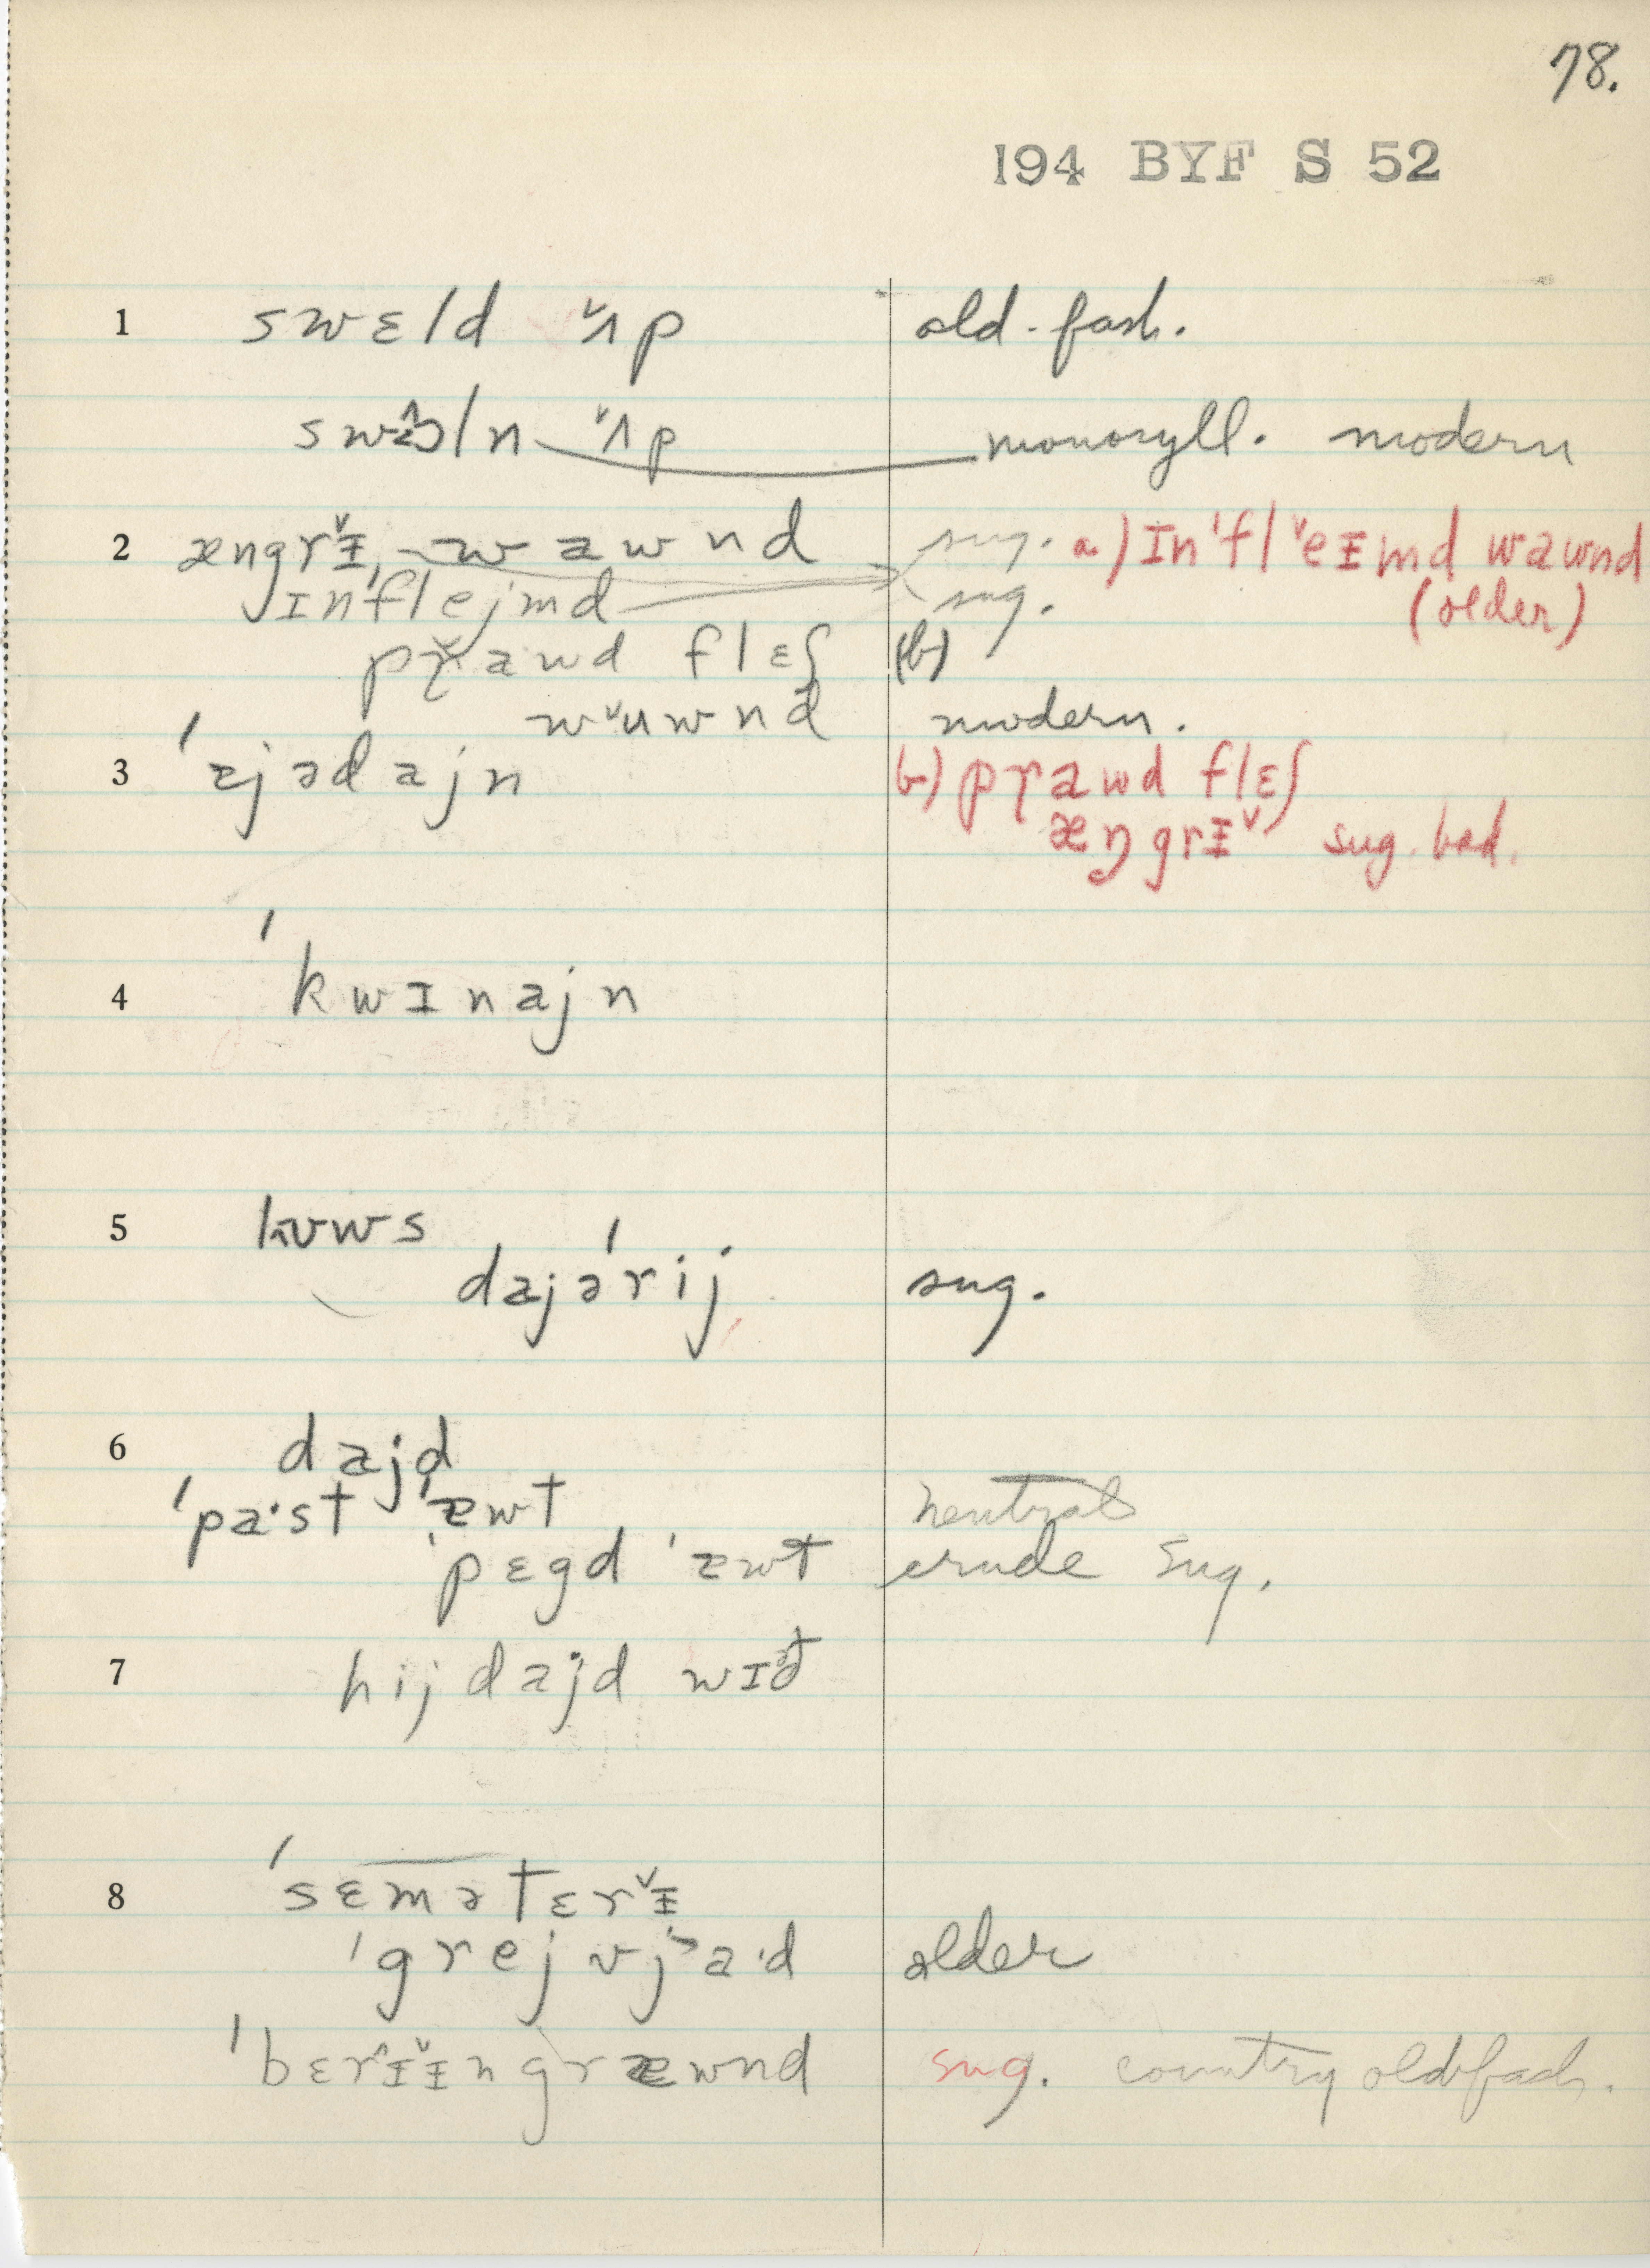 78.
194 BYF S 52
1 swɛld ˇʌp old-fash.
swoln ˇʌp monosyll. modern
2 ængrˇɪ, wawnd sug. a) ɪn'flˇeɪmd wawnd
ɪnflejmd sug. (older)
prˇawd flɛʃ (b)
wˇuwnd modern.
3 'ajədajn b) prawd flɛʃ
æŋgrɪˇ sug. bad.
4 'kwɪnajn
5 kʋws
dajə'rij sug.
6 dajd
'pa·st 'æwt neutral
'pɛgd 'æwt crude sug.
7 hij dajd wɪð
8 'sɛmətɛrˇɪ
'grejvja·d older
'bɛrɪˇɪngræwnd sug. country old fash.